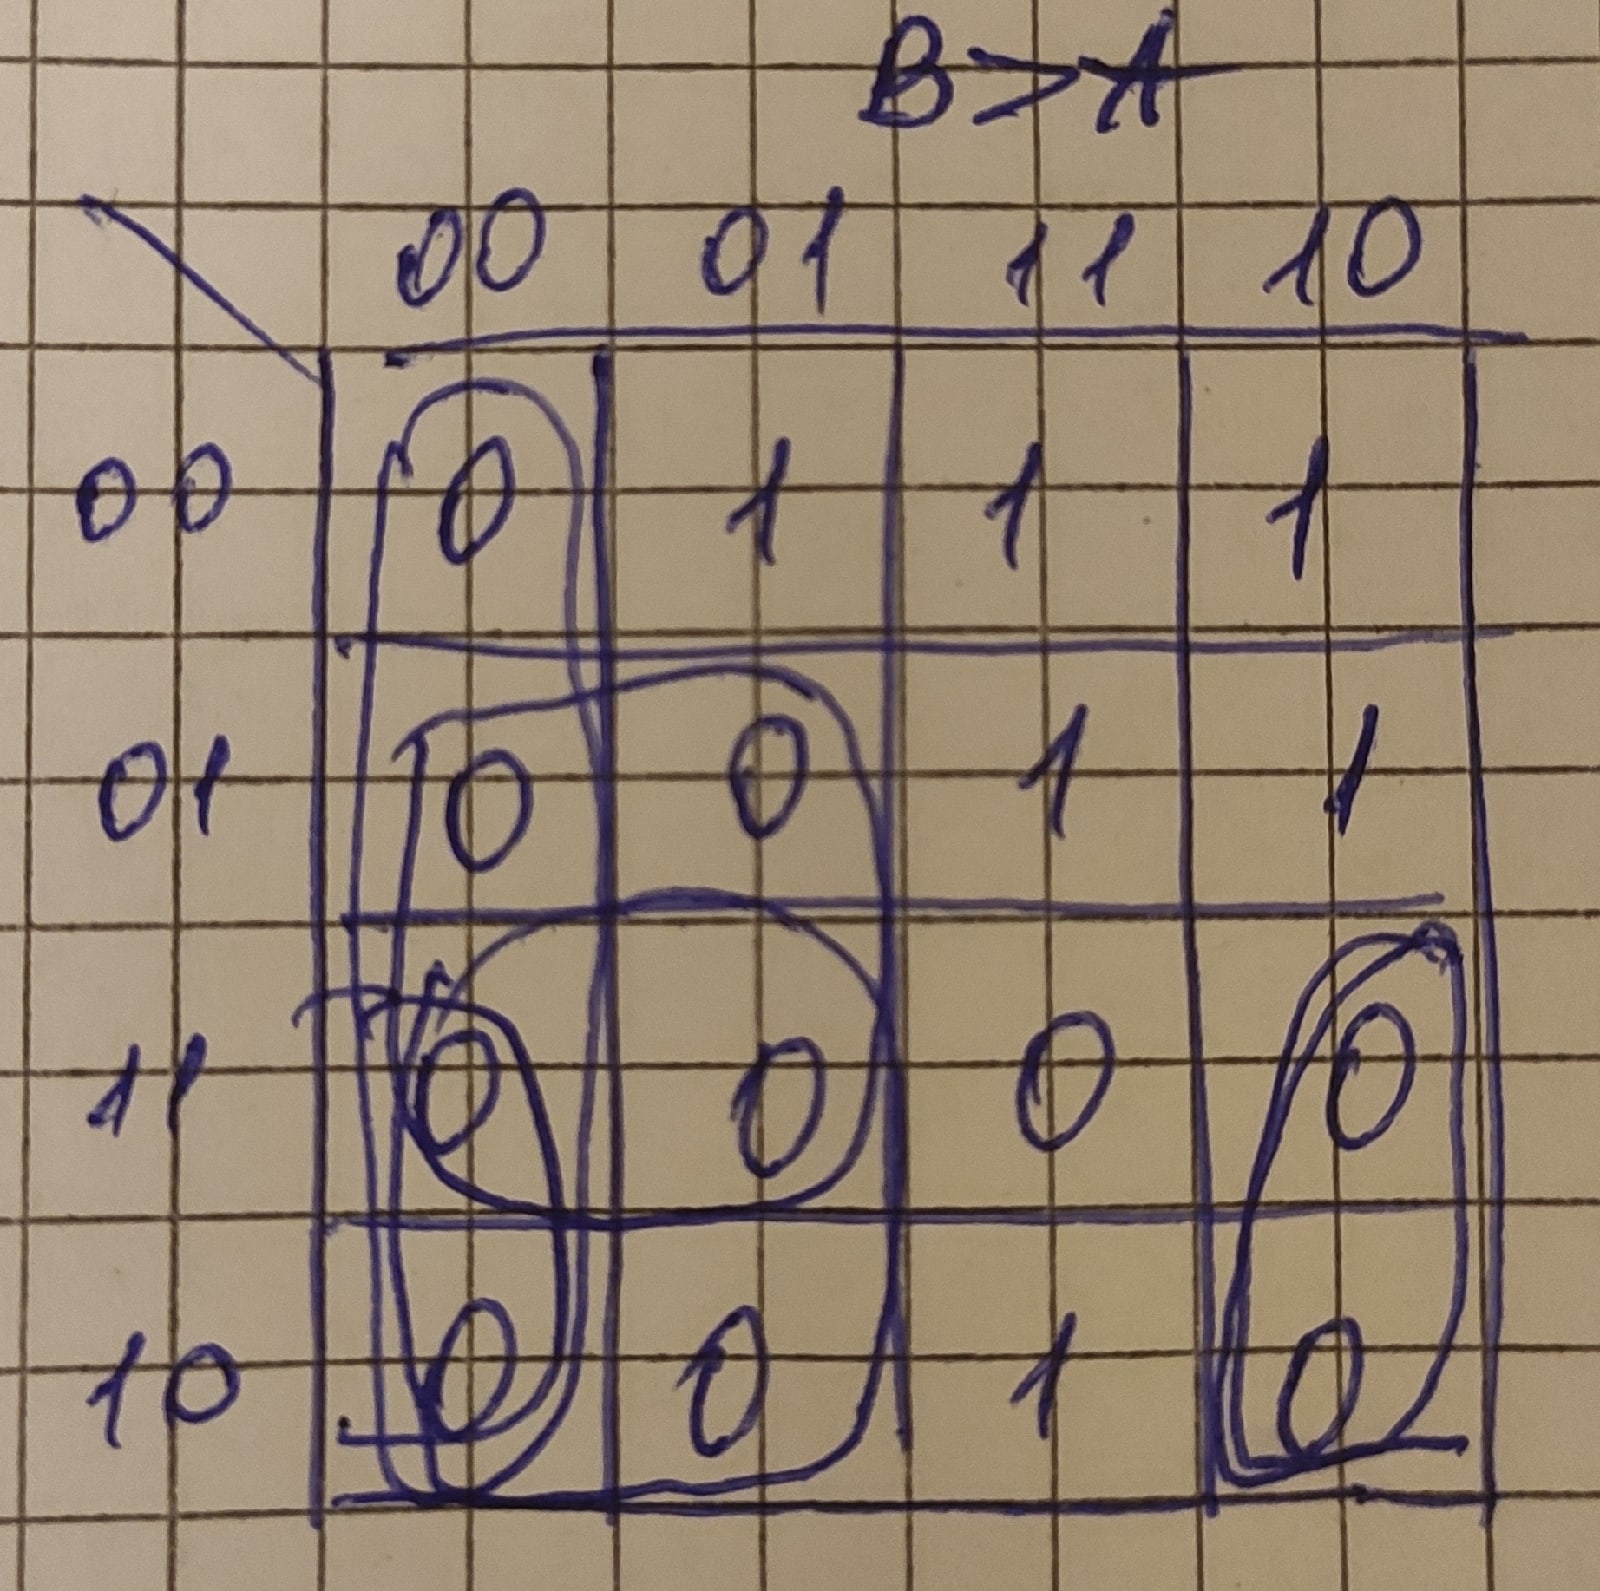 B>A
00 01 11 10
00 0 1 1 1
01 0 0 1 1
11 0 0 0 0
10 0 0 1 0